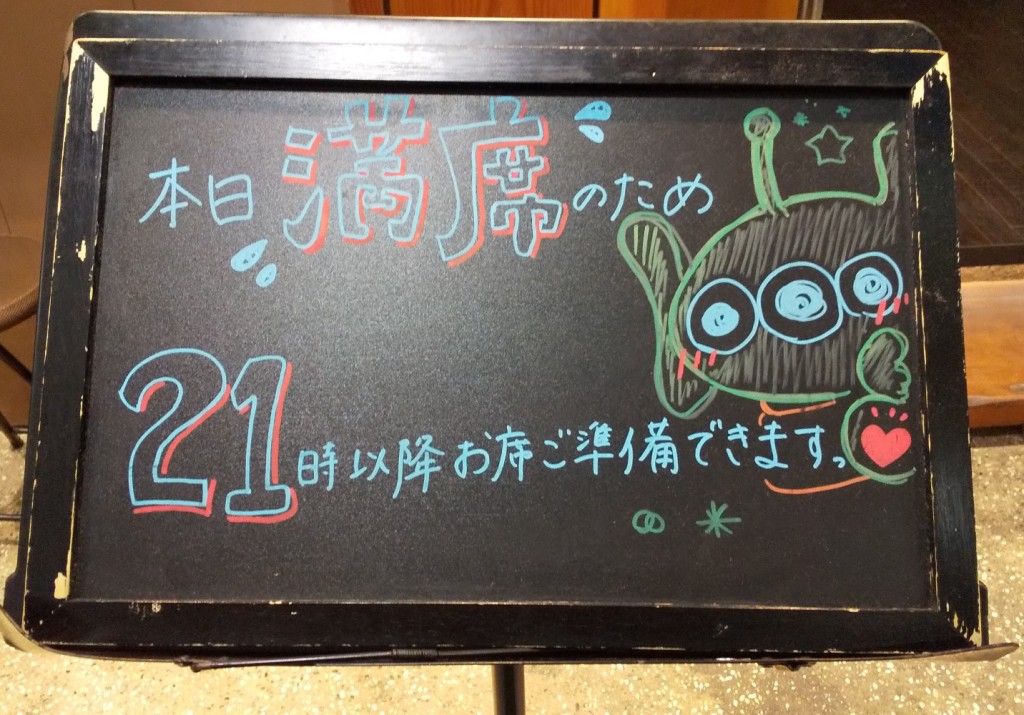 本日満席のため
21時以降お席ご準備できます。